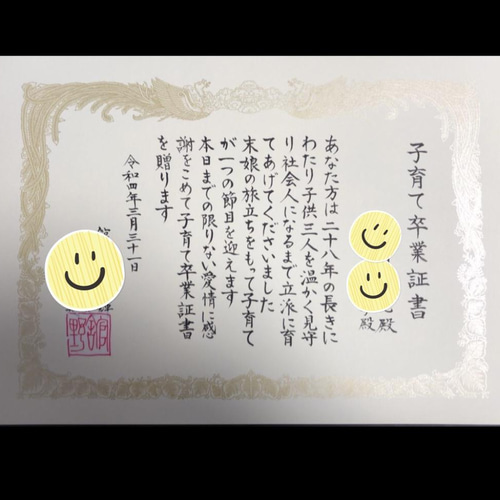 子育て卒業証書
殿
殿
あなた方は二十八年の長きに
わたり子供三人を温かく見守
り社会人になるまで立派に育
てあげてくださいました
末娘の旅立ちをもって子育て
が一つの節目を迎えます
本日までの限りない愛情に感
謝をこめて子育て卒業証書
を贈ります
令和四年三月三十一日